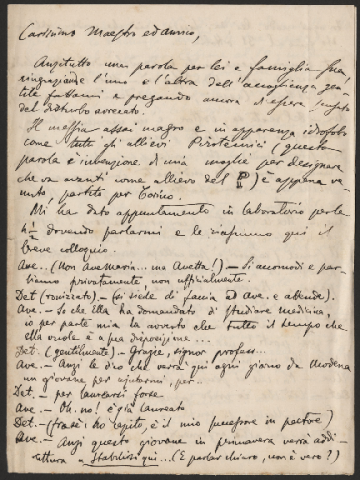 Carissimo Maestro ed amico,
Anzitutto una parola per lei e famiglia Sua
ringraziando l'uno e l'altra dell'accoglienza gen-
tile fattami e pregando ancora d'essere scusato
del disturbo arrecato.
Il messia assai magro e in apparenza idrofobo
come tutti gli allievi Pirotecnici (questa
parola è invenzione di mia moglie per designare
che va avanti come allievo del P) è appena ve-
nuto, partito per Torino.
Mi ha dato appuntamento in laboratorio per le
dovendo parlarmi e le riassumo qui il
breve colloquio.
Ave. (Non Ave Maria... ma Avetta!) – Si accomodi e par-
liamo privatamente, non ufficialmente.
Det. – (si siede di faccia ad Ave. e attende).
Ave. – So che Ella ha domandato di studiare Medicina,
io per parte mia la avverto che tutto il tempo che
ella vuole è a sua disposizione...
Det. (gentilmente) – Grazie, signor profess...
Ave. – Anzi le dirò che verrà qui ogni giorno da Modena
un giovane per aiutarmi, per..
Det. – per laurearsi forse
Ave – Oh no! è già laureato
Det. – (frase: ho capito, è il mio successore in pectore)
Ave – Anzi questo giovane in primavera verrà addi-
rittura a stabilirsi qui... (E parlar chiaro, non è vero?)